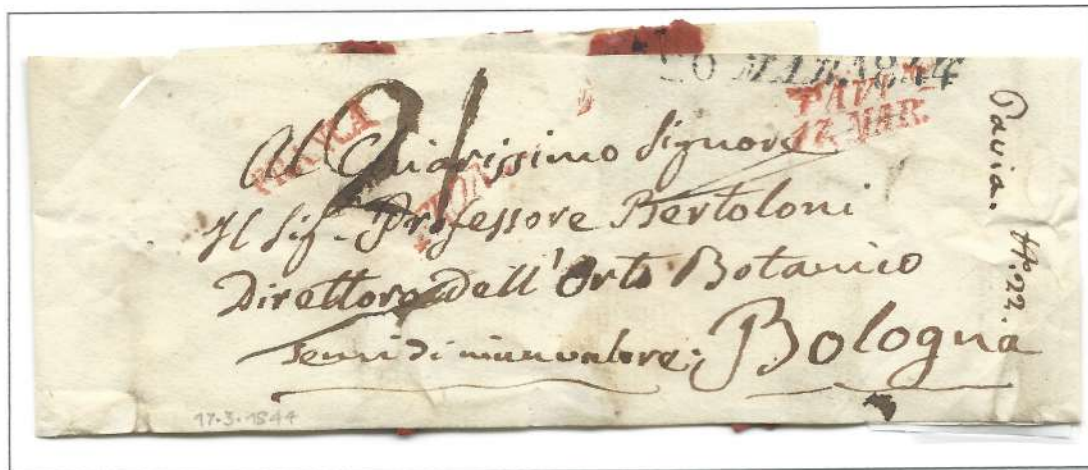 20 MAR. 1844
PAVIA
17. MAR.
FRANCA
FRON.
21
Al Chiarissimo Signore
Il Sig.r Professore Bertoloni
Direttore Dell'Orto Botanico
semi di niun valore; Bologna
Pavia. N.o 22.
17.3.1844